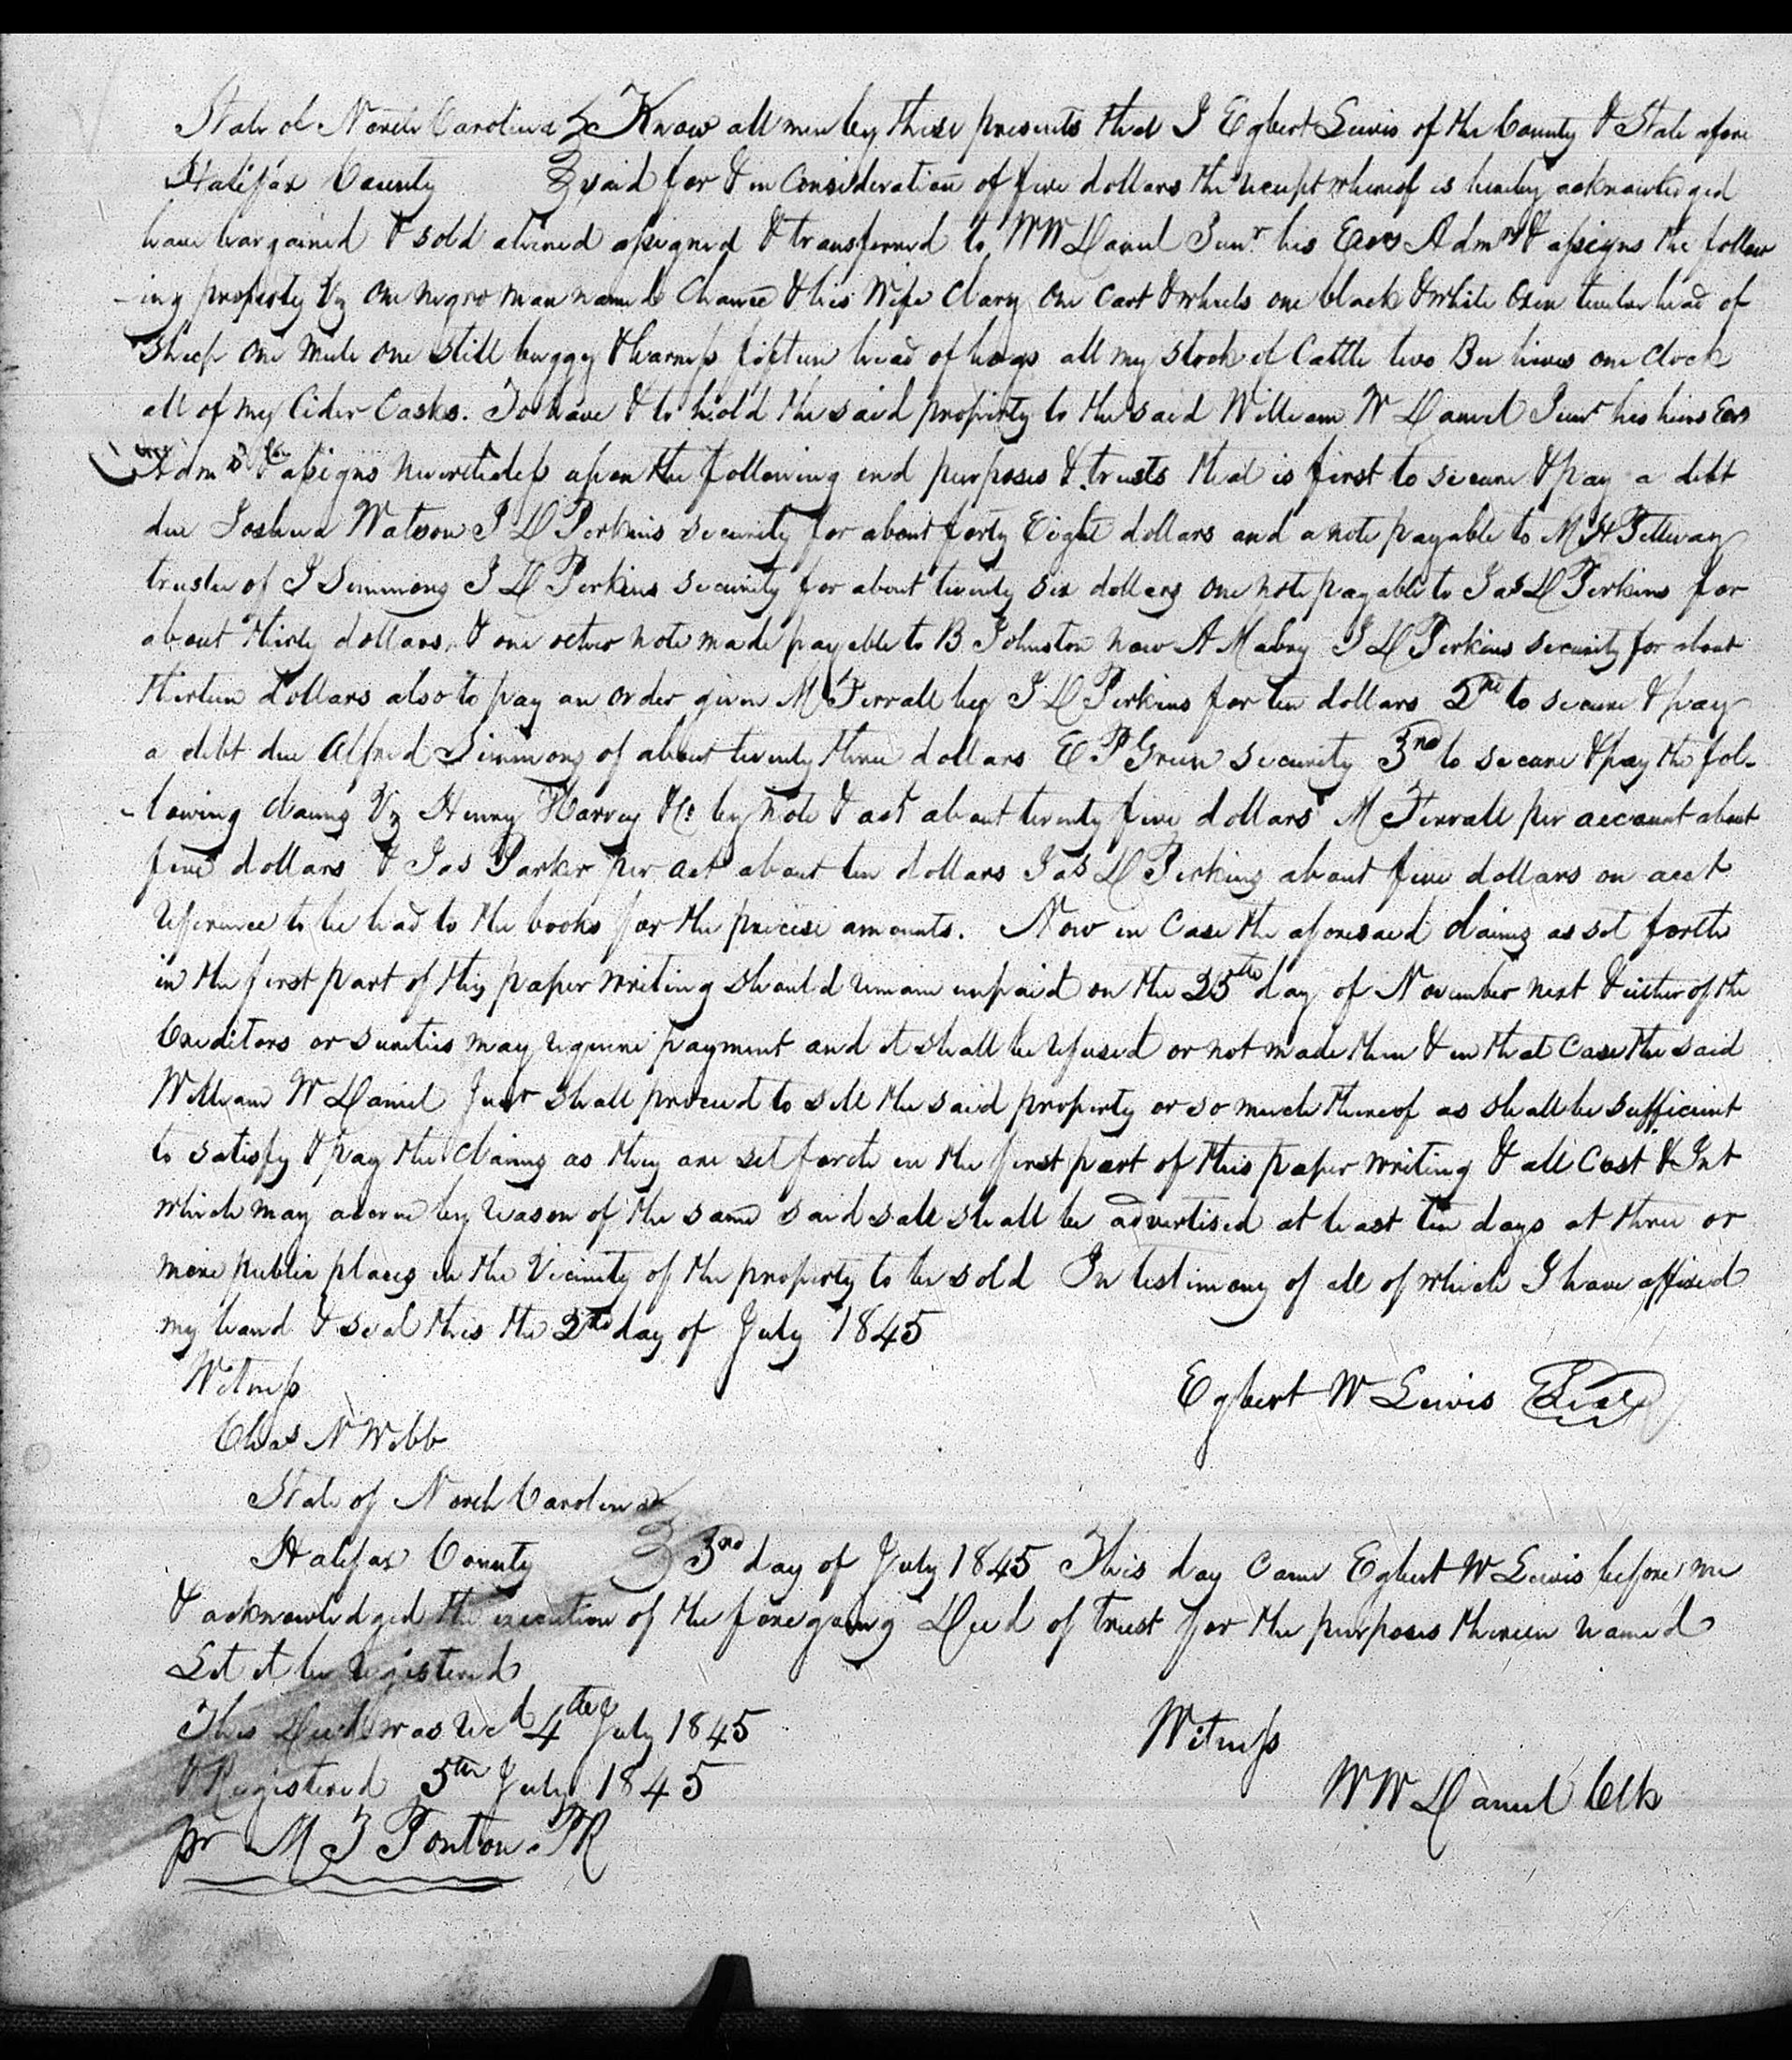 State of North Carolina } Know all men by these presents that I Egbert Lewis of the County & State afore
Halifax County } said for & in Consideration of five dollars the receipt whereof is hereby acknowledged
have bargained & sold aliened assigned & transferred to W W Daniel Junr his Exrs Admrs & assigns the follow
-ing property Viz one negro man named Chance & his Wife Clary one Cart & wheels one black & white Oxen twelve head of
Sheep one Mule one Still buggy & harness fifteen head of hogs all my Stock of Cattle two Bee hives one Clock
all of my Cider Casks. To have & to hold the said property to the said William W Daniel Junr his heirs Exrs
Admrs & assigns nevertheless upon the following end purposes & trusts that is first to secure & pay a debt
due Joshua Watson J D Perkins security for about forty Eight dollars and a note payable to M H Pettway
trustee of J Simmons J D Perkins security for about twenty six dollars one note payable to Jas D Perkins for
about thirty dollars, & one other note made payable to B Johnston now A Mabry J D Perkins security for about
thirteen dollars also to pay an order given M Ferrall by J D Perkins for ten dollars 2nd to secure & pay
a debt due Alfred Simmons of about twenty three dollars E P Green security 3rd to secure & pay the fol-
-lowing claims Viz Henry Harvey & Co by note & act about twenty five dollars M Ferrall per account about
five dollars & Jas Parker per act about ten dollars Jas D Perkins about five dollars on acct
reference to be had to the books for the precise amounts. Now in Case the aforesaid claims as set forth
in the first part of this paper writing should remain unpaid on the 25th day of November next & either of the
Creditors or sureties may require payment and it shall be refused or not made then & in that Case the said
William W Daniel Junr shall proceed to sell the said property or so much thereof as shall be sufficient
to satisfy & pay the claims as they are set forth in the first part of this paper writing & all Cost & Int
which may accrue by reason of the same said sale shall be advertised at least ten days at three or
more public places in the Vicinity of the property to be sold In testimony of all of which I have affixed
my hand & seal this the 2nd day of July 1845
Witness
Egbert W Lewis Seal
Chas N Webb
State of North Carolina
Halifax County } 3rd day of July 1845 This day Came Egbert W Lewis before me
& acknowledged the execution of the foregoing Deed of trust for the purposes therein named
Let it be registered
This Deed was recd 4th July 1845
Witness
& Registered 5th July 1845
W W Daniel Clk
pr M F Ponton PR